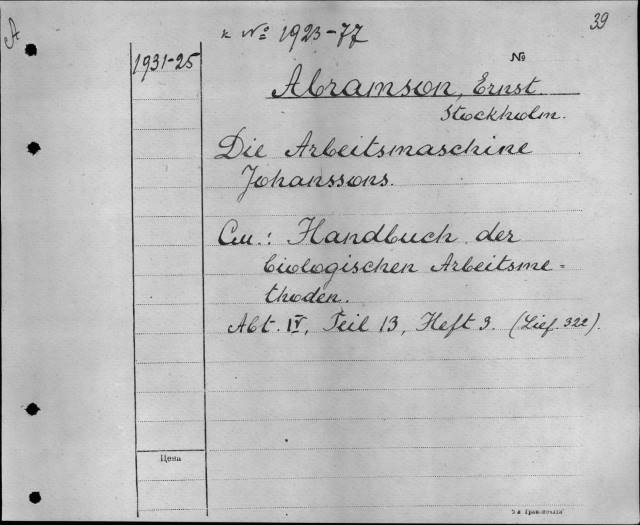 A
к № 1923-77
39
1931-25
№
Abramson, Ernst
Stockholm.
Die Arbeitsmaschine
Johanssons.
См.: Handbuch der
biologischen Arbeitsme-
thoden.
Abt. IV, Teil 13, Heft 3. (Lief. 322).
Цена